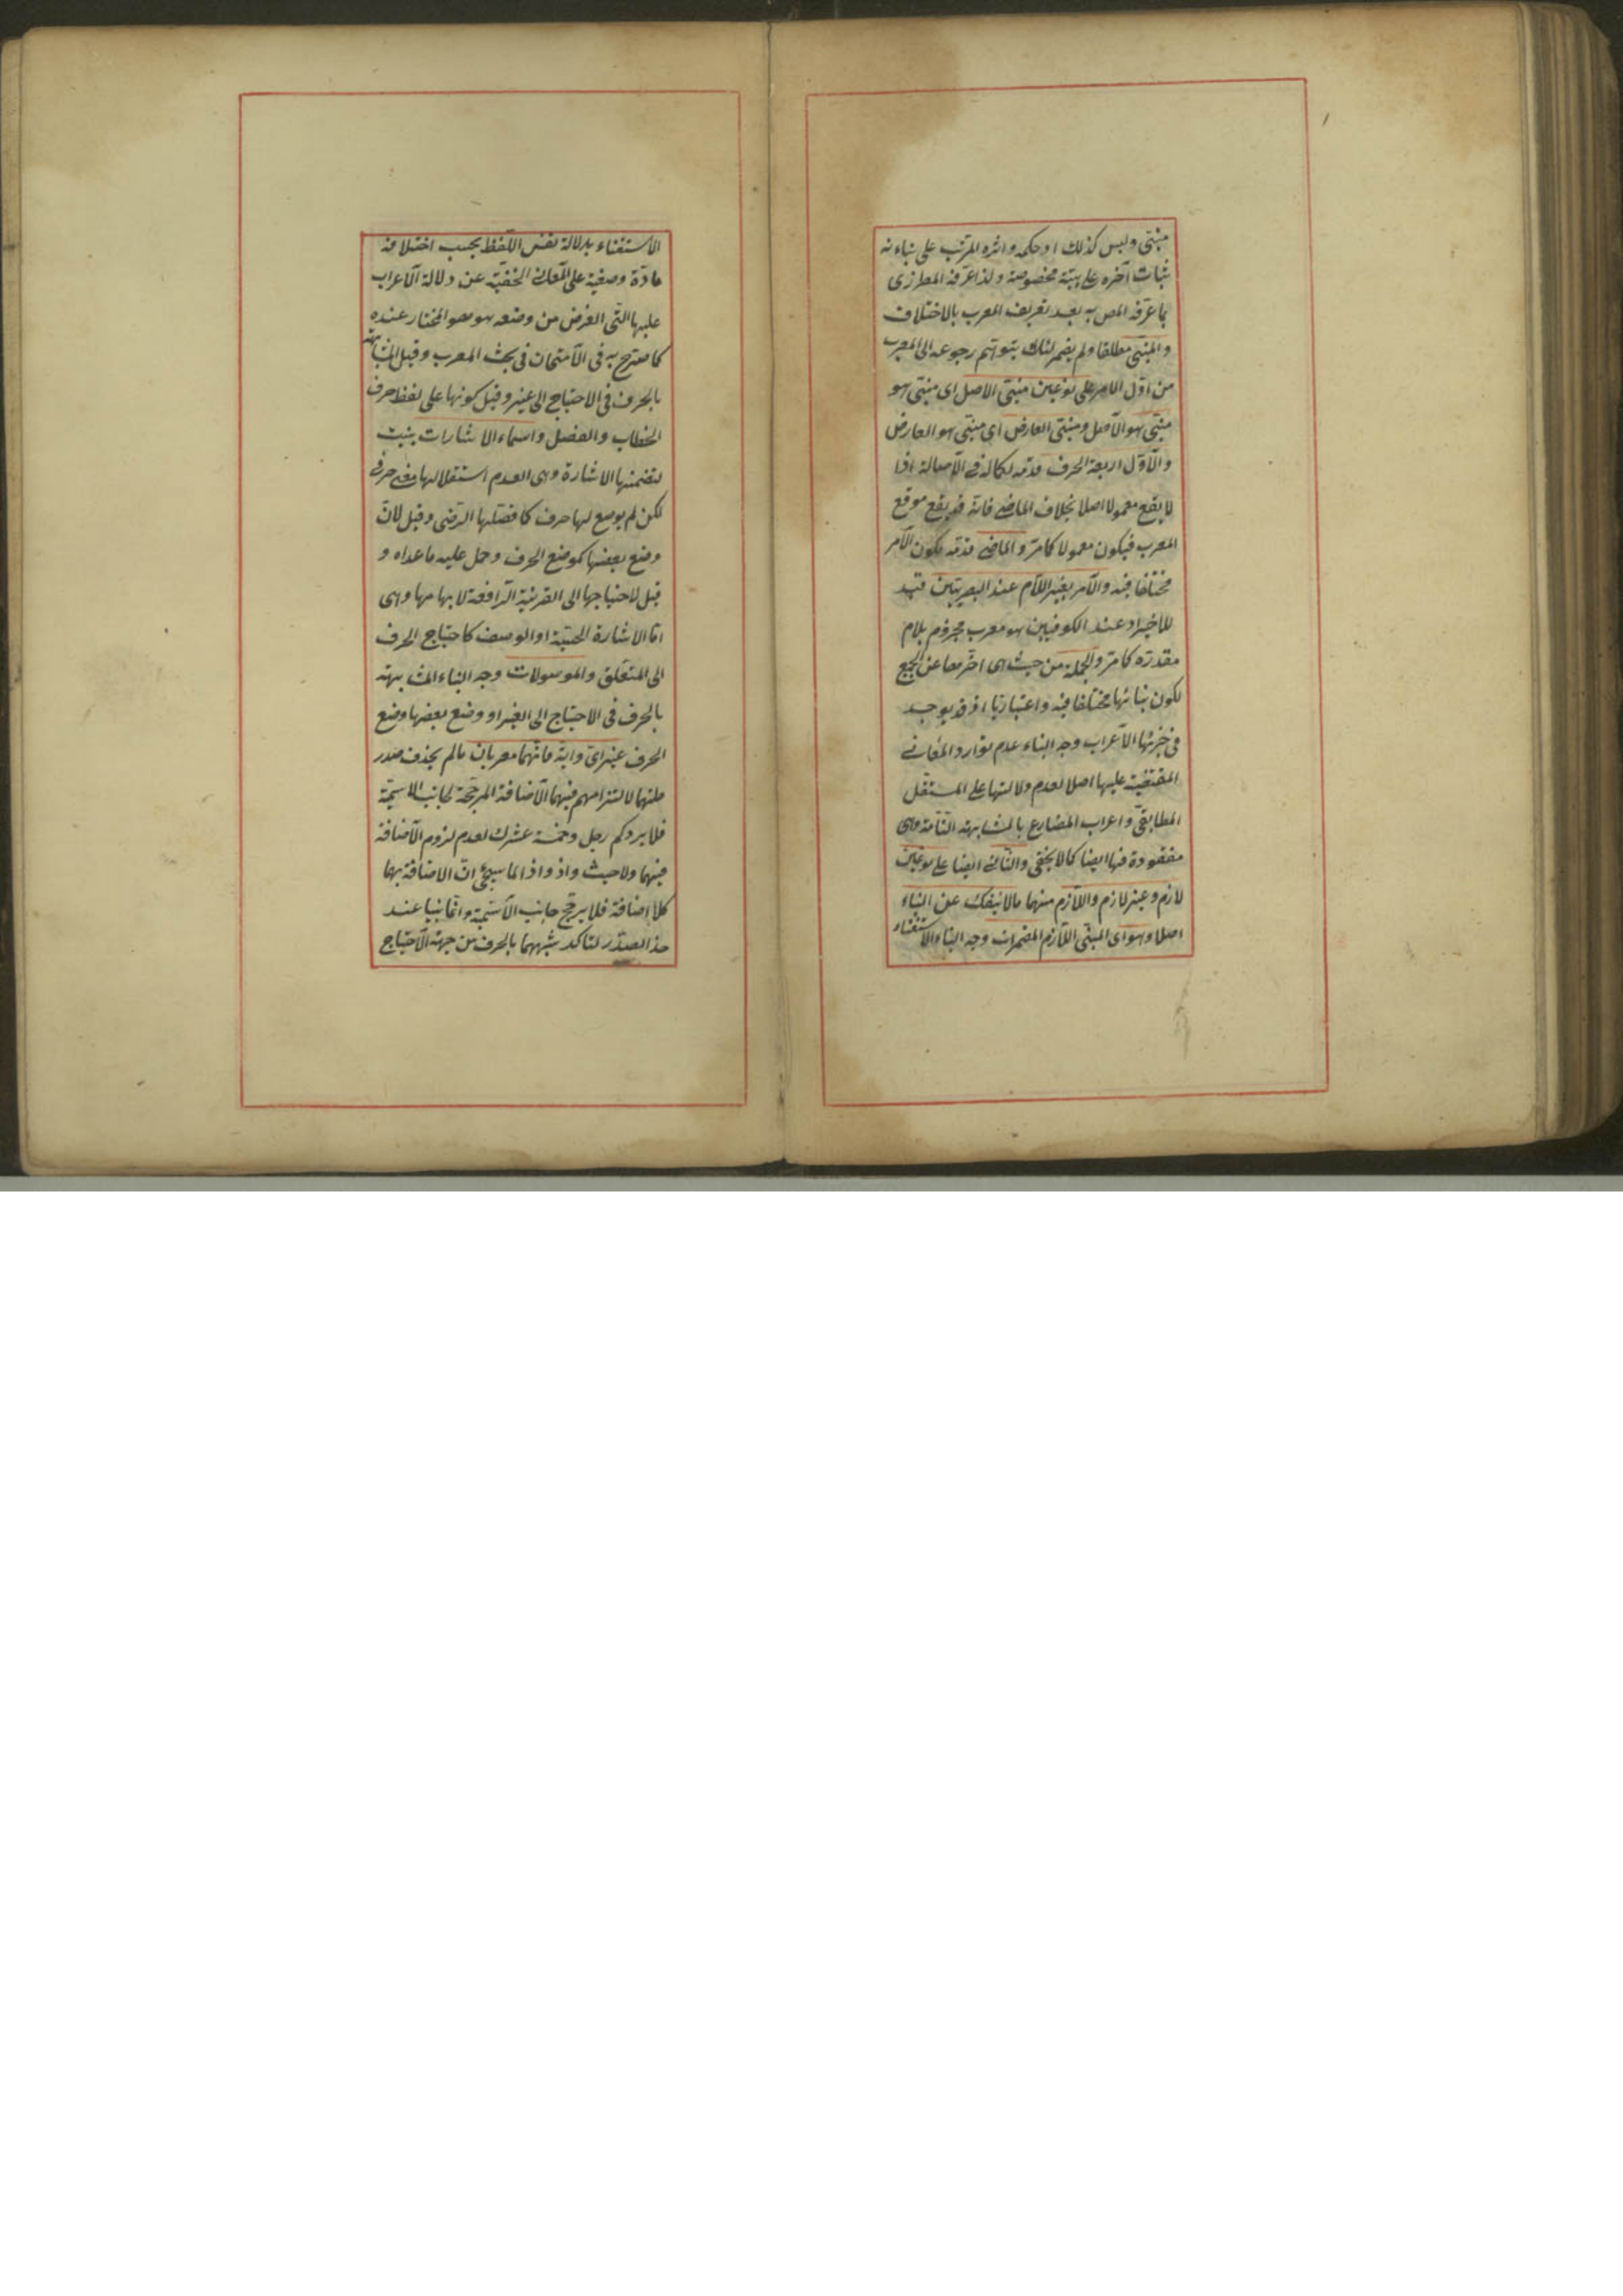 مبنى وليس كذلك او حكمه واثره المرتب على بنائه
ثبات آخره على هيئة مخصوصة ولذا عرفه المطرزى
بما عرفه المص به بعد تعريف المعرب بالاختلاف
والمبنى مطلقا ولم يضمر لئلا يتوهم رجوعه الى المعرب
من اول الامر على نوعين مبنى الاصل اى مبنى هو
مبنى هو الاصل ومبنى العارض اى مبنى هو العارض
والاول اربعة الحرف قدمه لكماله فى الاصالة اذ لا
لا يقع معمولا اصلا بخلاف الماضى فانه قد يقع موقع
المعرب فيكون معمولا كما مر والماضى قدمه لكون الامر
مختلفا فيه والامر بغير اللام عند البصريين قيد
للاخير وعند الكوفيين هو معرب مجزوم بلام
مقدرة كما مر والجملة من حيث هى اخرها عن الجميع
لكون بنائها مختلفا فيه واعتباريا اذ قد يوجد
فى جزئها الاعراب وجه البناء عدم توارد المعانى
المقتضية عليها اصلا لعدم دلالتها على المستقل
المطابقى واعراب المضارع بالمشابهة التامة وهى
مفقودة فيها ايضا كما لا يخفى والثانى ايضا على نوعين
لازم وغير لازم واللازم منهما ما لا ينفك عن البناء
اصلا وهو اى المبنى اللازم المضمرات وجه البناء الاستغناء
الاستغناء بدلالة نفس اللفظ بحسب اختلافه
مادة وصيغة على المعانى الخفية عن دلالة الاعراب
عليها التى الغرض من وضعه هو هو المختار عنده
كما صرح به فى الامتحان فى بحث المعرب وقيل المشابهة
بالحرف فى الاحتياج الى غير وقيل كونها على لفظ حرف
الخطاب والفصل واسماء الاشارات بنيت
لتضمنها الاشارة وهى لعدم استقلالها معنى حرفى
لكن لم يوضع لها حرف كما فصلها الرضى وقيل لان
وضع بعضها كموضع الحرف وحمل عليه ما عداه و
قيل لاحتياجها الى القرينة الرافعة لابهامها وهى
اما الاشارة الحسية او الوصف كاحتياج الحرف
الى المتعلق والموصولات وجه البناء المشابهة
بالحرف فى الاحتياج الى الغير او وضع بعضها وضع
الحرف غير اى واية فانهما معربان ما لم يحذف صدر
صلتهما لالتزامهم فيهما الاضافة المرجحة لجانب الاسمية
فلا يرد كم رجل وخمسة عشرك لعدم لزوم الاضافة
فيهما ولا حيث واذ واذا لما سيجئ ان الاضافة بهما
كلا اضافة فلا يرجح جانب الاسمية وانما بنيا عند
حذ الصدر لتاكد شبههما بالحرف من جهة الاحتياج